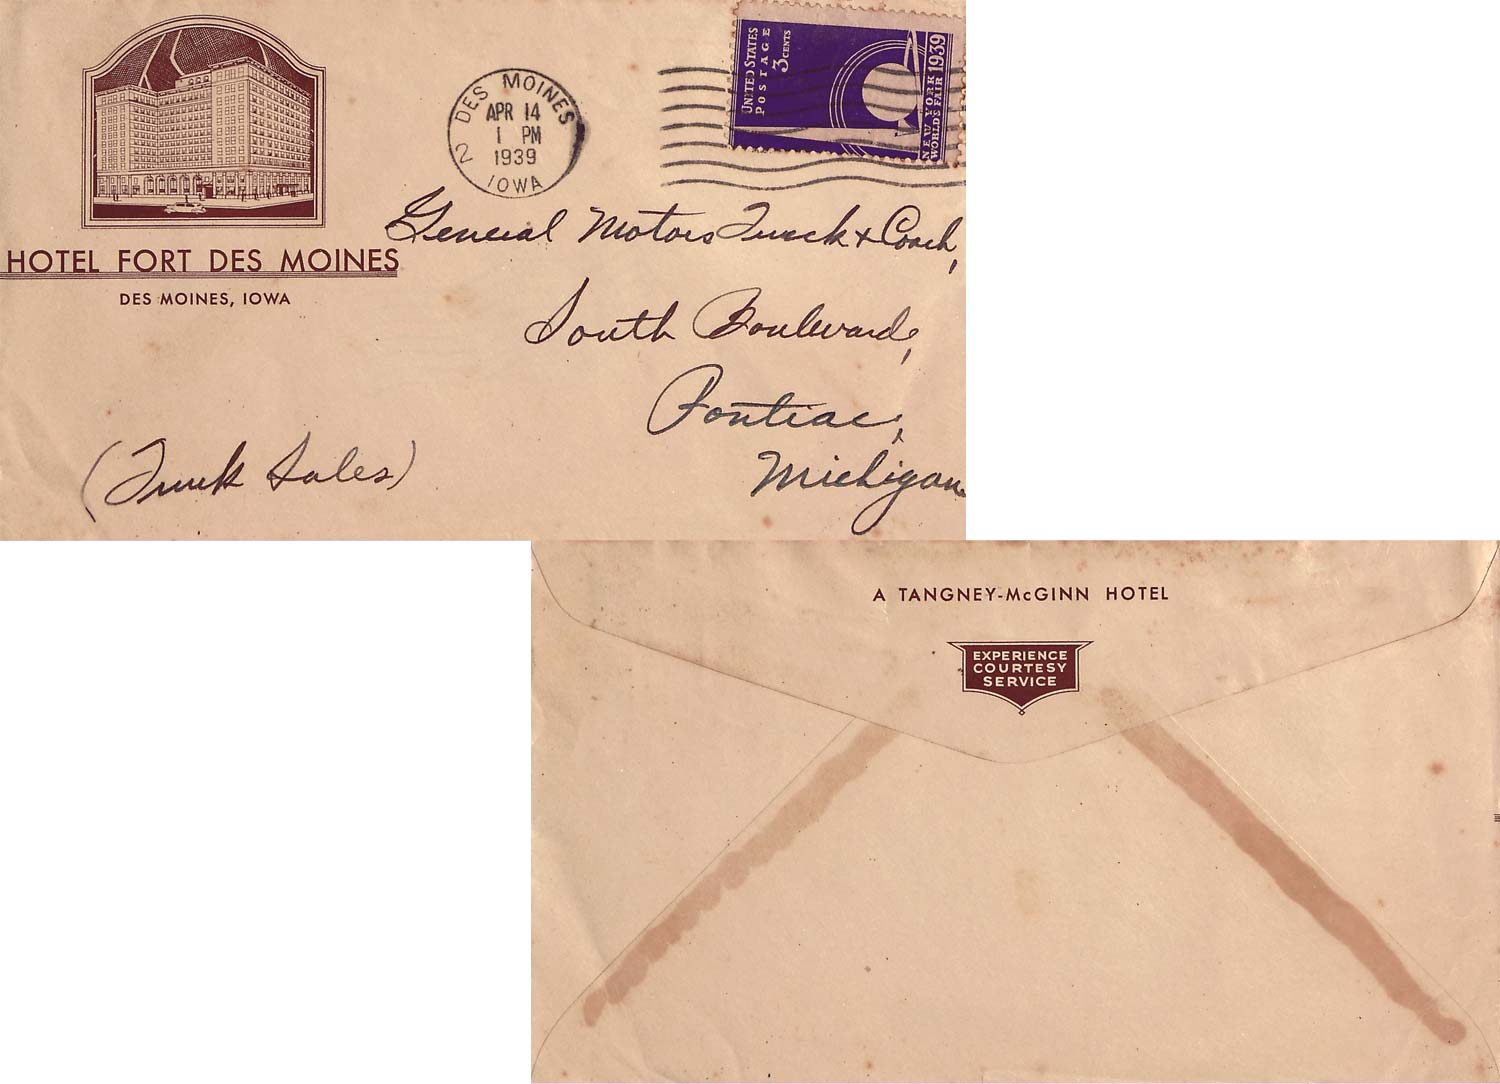 HOTEL FORT DES MOINES
DES MOINES, IOWA
DES MOINES
APR 14
1 PM
1939
2
IOWA
UNITED STATES
POSTAGE
3 CENTS
NEW YORK
WORLD'S FAIR 1939
General Motors Truck & Coach,
South Boulevard,
Pontiac,
Michigan
(Truck Sales)
A TANGNEY-McGINN HOTEL
EXPERIENCE
COURTESY
SERVICE